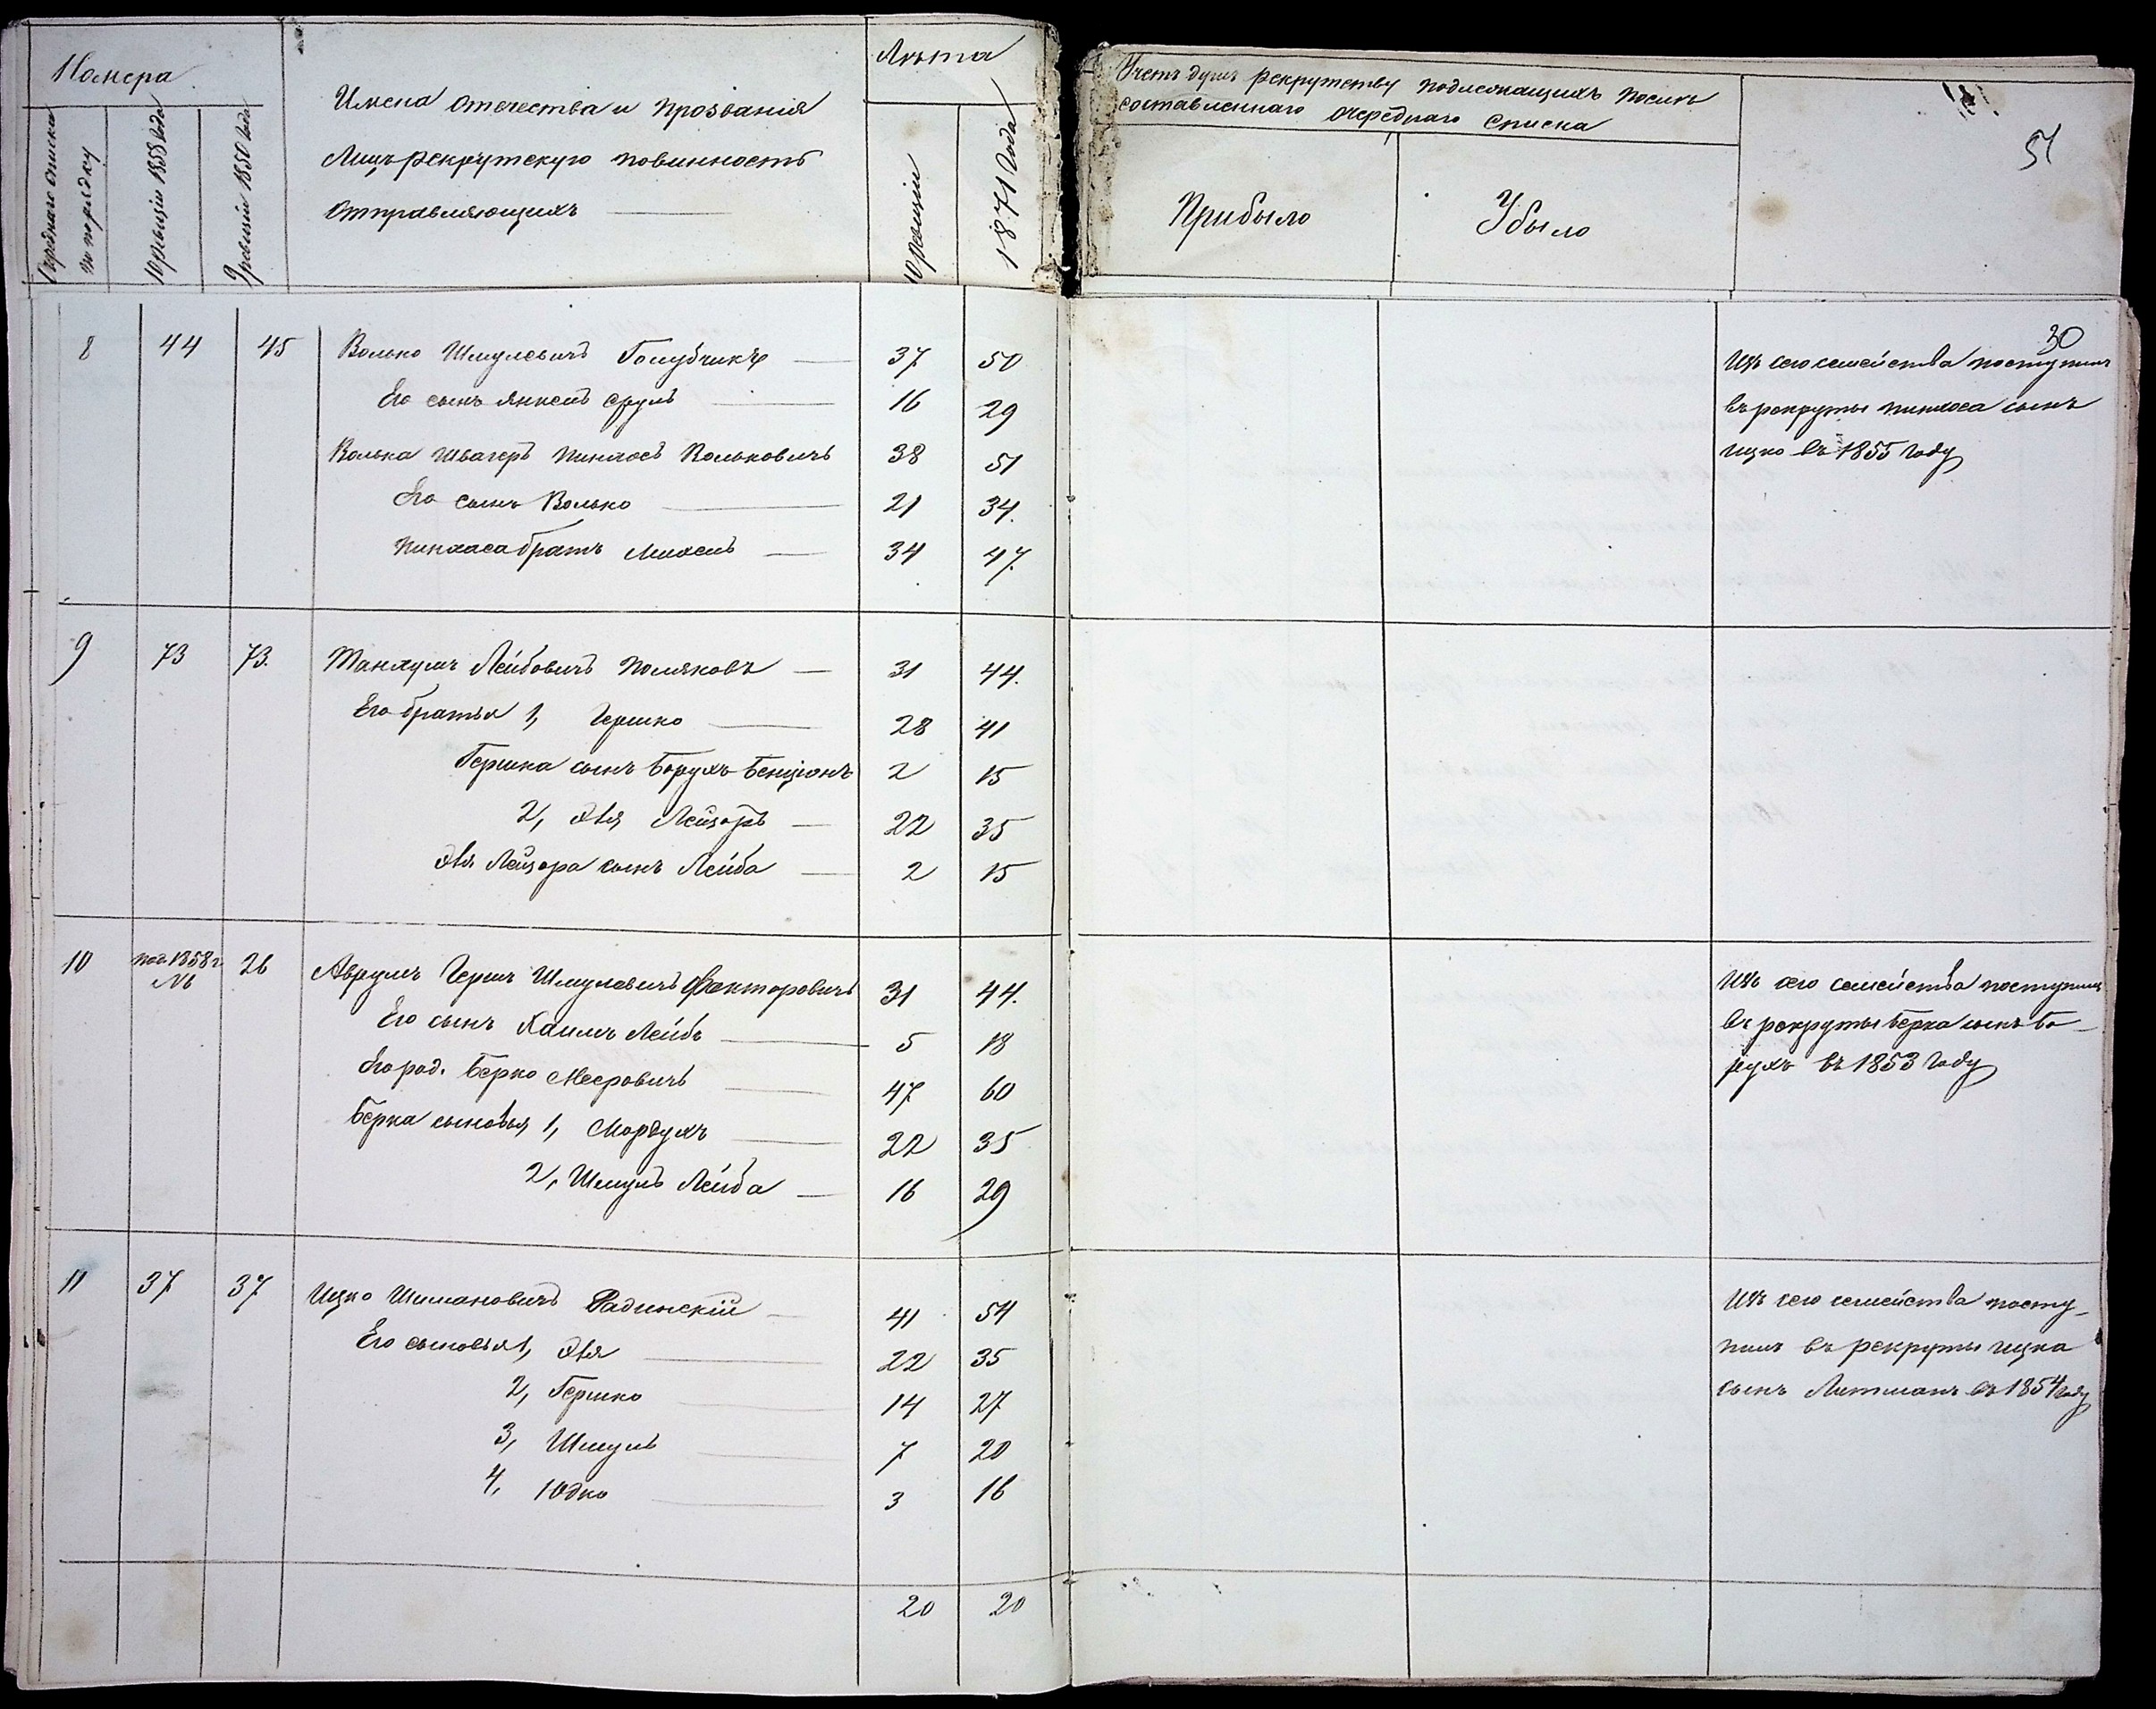 Номера
Очереднаго списка по порядку
10 ревизіи 1858 года
9 ревизіи 1850 года
Имена отечества и прозванія
Лицъ рекрутскую повинность
отправляющихъ
Лѣта
10 ревизіи
1871 года
Счетъ душъ рекрутству подлежащихъ после
составленнаго очереднаго списка
Прибыло
Убыло
51
30
8 44 45 Волько Шмулевичъ Голубчикъ 37 50
Его сынъ Янкель Сруль 16 29
Волька швагеръ Пинхосъ Вольковичъ 38 51
Его сынъ Волько 21 34.
Пинхаса братъ 34 47.
Изъ сего семейства поступилъ
въ рекруты Пинхоса сынъ
Ицко въ 1855 году
9 73 73. Танхумъ Лейбовичъ Поляковъ 31 44.
Его братья 1, Гершко 28 41
Гершка сынъ Борухъ-Бенціонъ 2 15
2, Овя Лейзоръ 22 35
Овя Лейзора сынъ Лейба 2 15
10 1858 г. № 26 Аврумъ Гершъ Шмулевичъ Факторовичъ 31 44.
Его сынъ Хаимъ Лейбъ 5 18
Его род. Берко Мееровичъ 47 60
Берка сыновья 1, Мордухъ 22 35
2, Шмуль Лейба 16 29
Изъ сего семейства поступилъ
въ рекруты Берка сынъ Бо-
рухъ въ 1853 году
11 37 37 Ицко Шимановичъ Радинскій 41 54
Его сыновья 1, Овя 22 35
2, Гершко 14 27
3, Шмуль 7 20
4, Юдко 3 16
Изъ сего семейства посту-
пилъ въ рекруты Ицка
сынъ Литманъ въ 1854 году
20 20